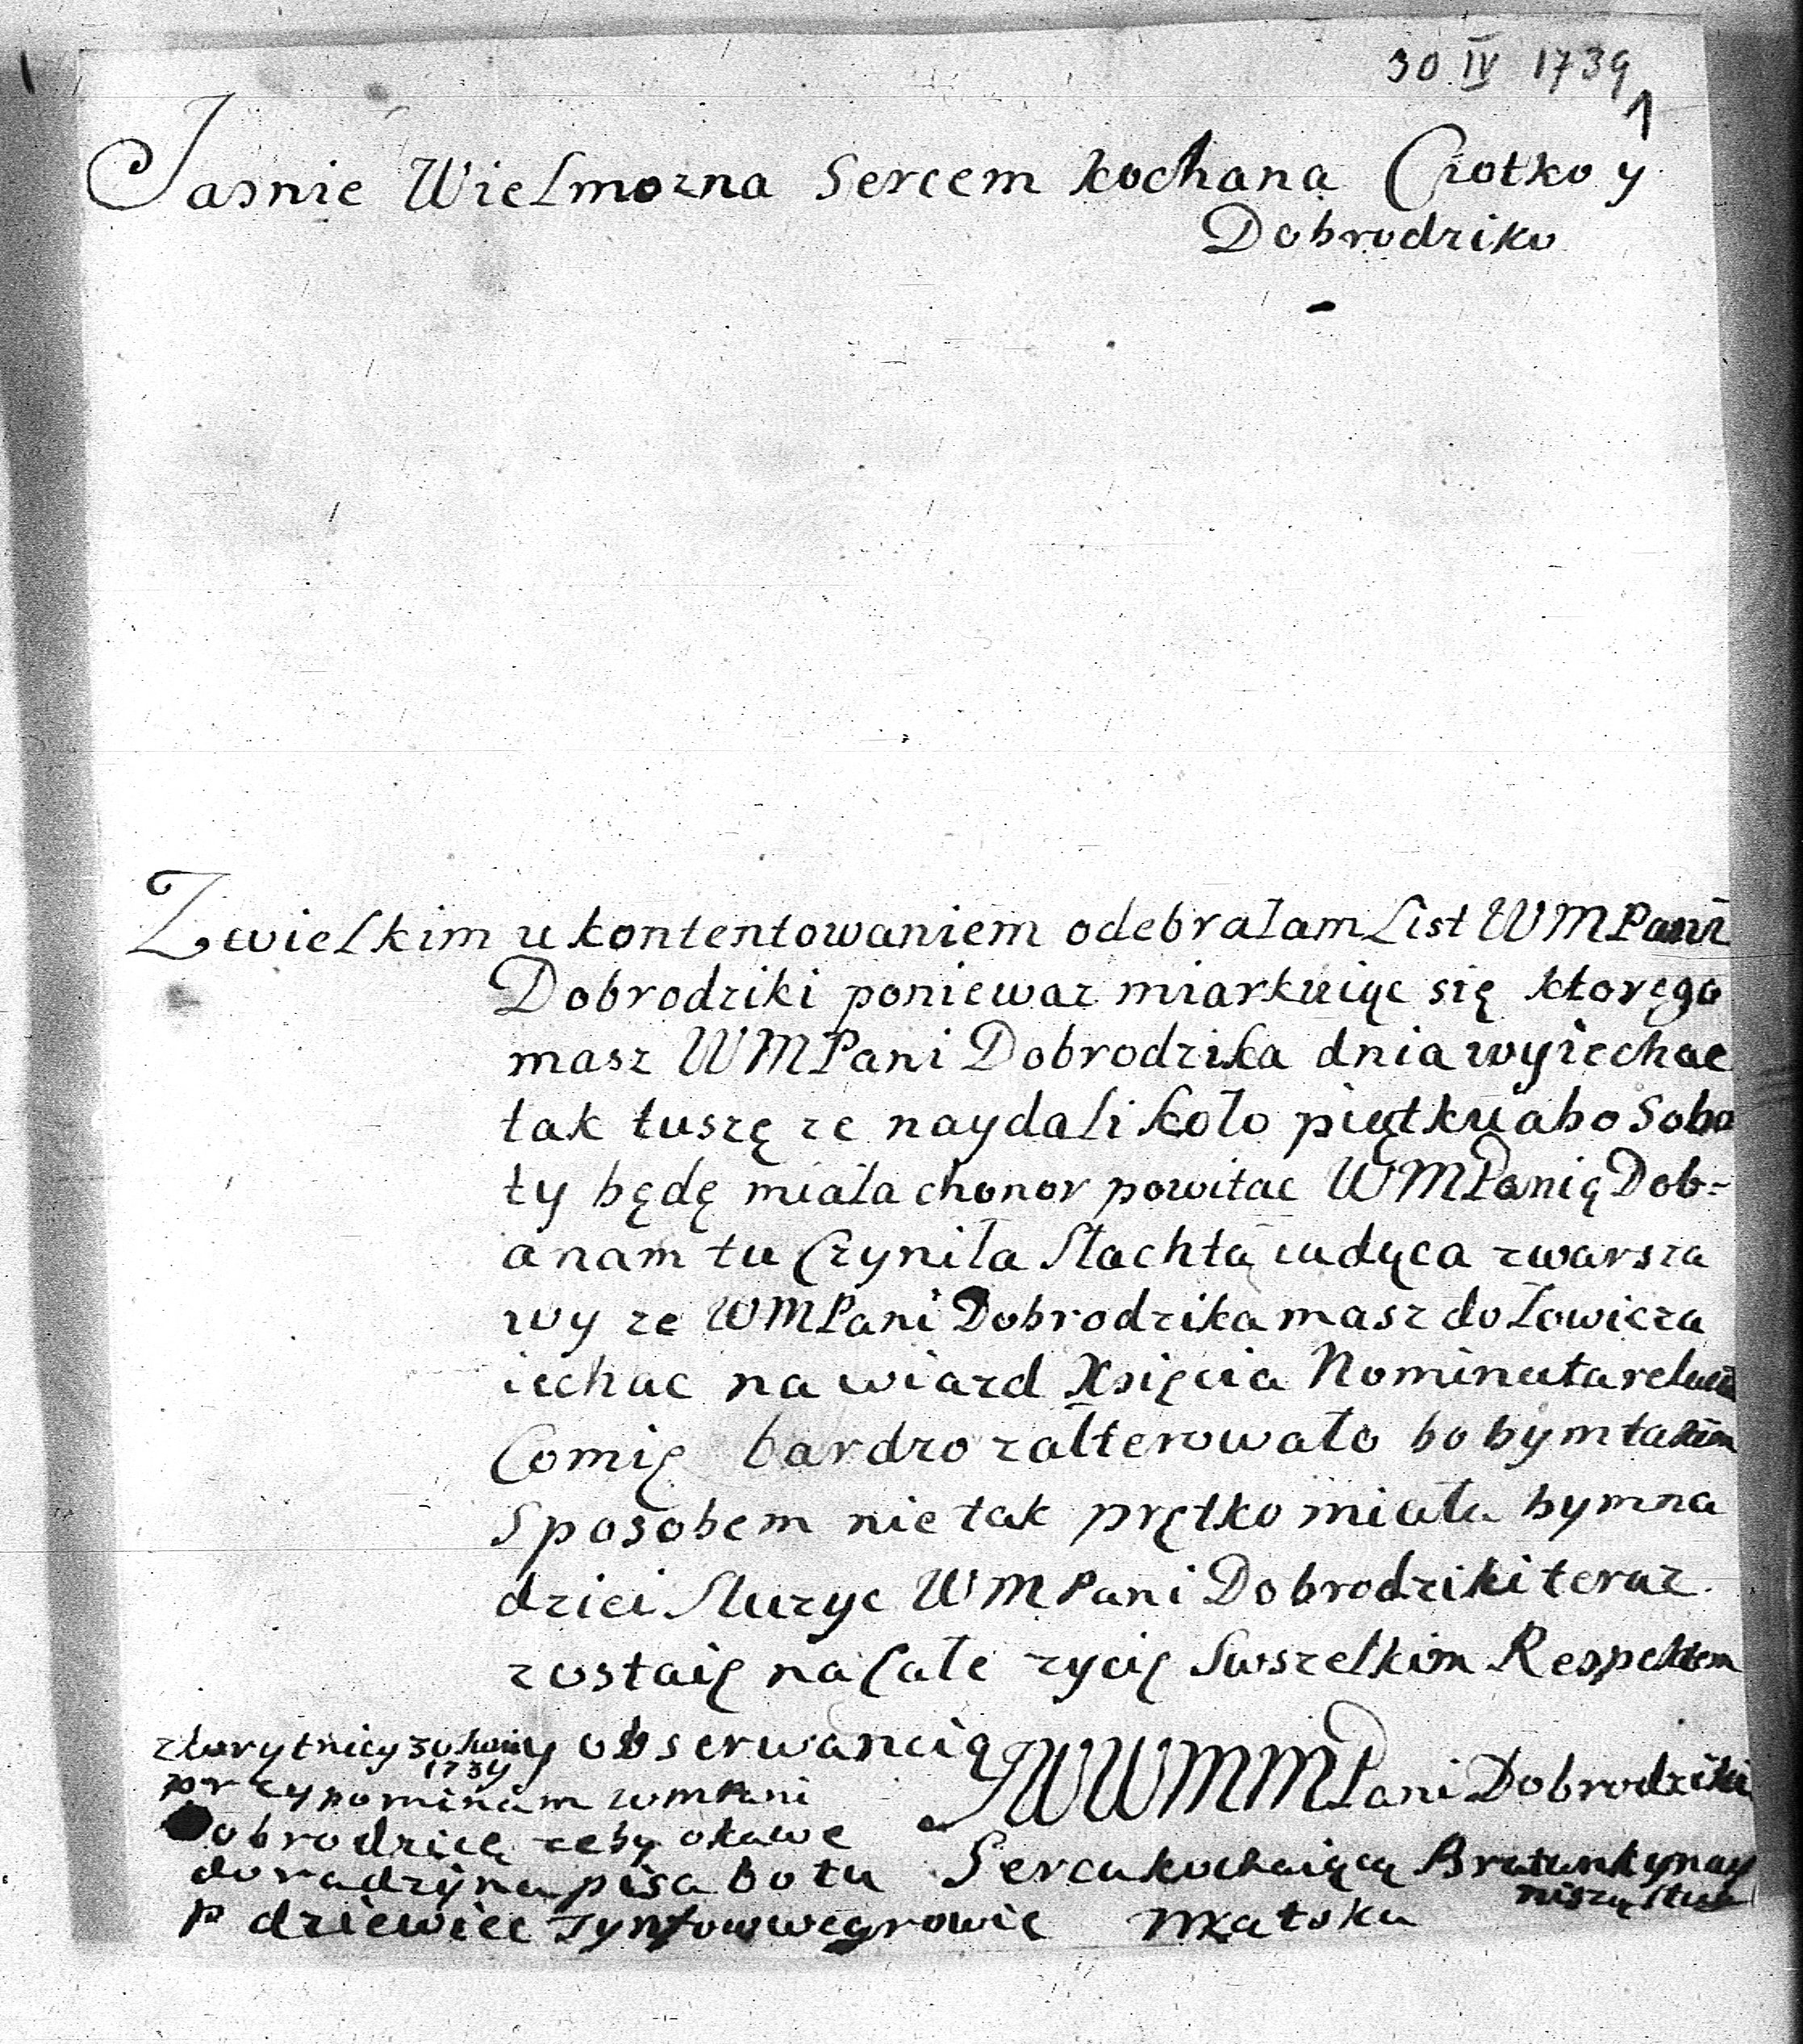 30 IV 1739
1
Jasnie Wielmozna Sercem kochana Ciotko y
Dobrodziko
Zwielkim ukontentowaniem odebrałam List WMPani
Dobrodziki poniewaz miarkuiąc się ktorego
masz WMPani Dobrodzika dnia wyiechac
tak tuszę ze naydali koło piątku abo Sobo
ty będę miała chonor powitac WMPanią Dob-
a nam tu Czyniła Slachta iadąca zwarsza
wy ze WMPani Dobrodzika masz do Łowicza
iechac na wiazd Xsięcia Nominata
Comię bardzo zalterowało bo bym takim
Sposobem nie tak prętko miała bym na
dziei Sluzyc WMPani Dobrodziki teraz
zostaię na Całe zycię Swszelkim Respektem
y obserwancią
JWWMMPani Dobrodziki
1739
przypominam WMPani
Dobrodzicą zeby okawe
do radzyna pisa bo tu
p dziewiec Tynfow wegrowie
Serca kochaiącą Bratanką nay
niszą